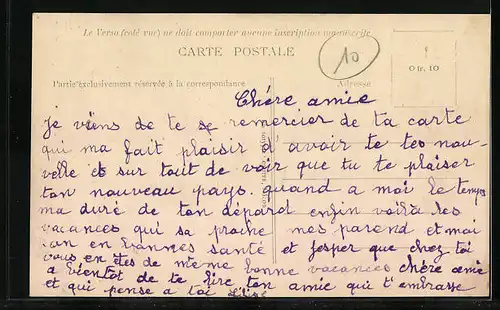 Le Verso (côté vue) ne doit comporter aucune inscription manuscrite
CARTE POSTALE
10
0 fr. 10
Partie exclusivement réservée à la correspondance
Adresse
Chére amie
Je viens de te remercier de ta carte
qui ma fait plaisir d'avoir te tes nou-
velle et sur tout de voir que tu te plaiser
ton nouveau pays. quand a moi le temps
ma duré de ton dépard enfin voilà les
vacances qui sa proche mes parend et moi
son en bonnes santé et jesper que chez toi
vous en êtes de même bonne vacances chére amie
a bientot de te lire ton amie qui t'embrasse
et qui pense a toi